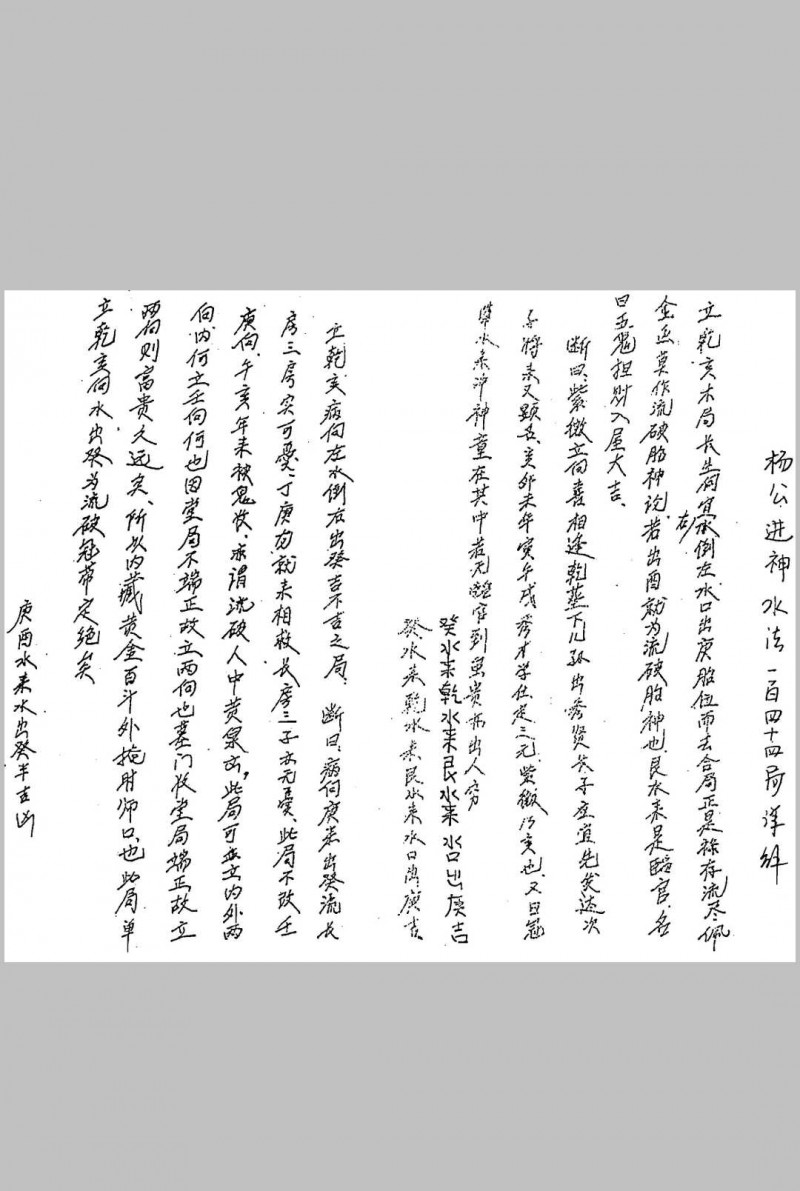 杨公进神水法一百四十四局详解
立乾亥木局长生向宜承右倒左水口出庚胎位而去合局正是禄存流尽佩
金鱼莫作流破胎神说若出酉就为流破胎神也艮水来是臨官名
曰五鬼担财入屋大吉.
断曰.紫微立向喜相逢乾墓下儿孙出秀贤长子应宜先发达次
子将来又显名.亥卯未年寅午戌秀才学仕定三元.紫微乃亥也.又曰冠
带水来沖神童在其中若无臨官到虽贵亦出人穷
癸水来乾水来艮水来水口出庚吉
癸水来乾水来艮水来水口出庚吉.
立乾亥病向左水倒右出癸吉不吉之局.断曰.病向庚来出癸流长
房三房实可憂.丁庚方就来相救长房三子亦无憂.此局不改壬
庚向.午亥年来被鬼收.亦谓流破人中黄泉亡,此局可亦立内外两
向内何立壬向何也因堂局不端正故立两向也墓门收堂局端正故立
两向则富贵久远矣.所以内藏黄金百斗外掩肘师口.也此局单
立乾亥向水出癸为流破冠带定绝矣
庚酉水来水出癸半吉凶